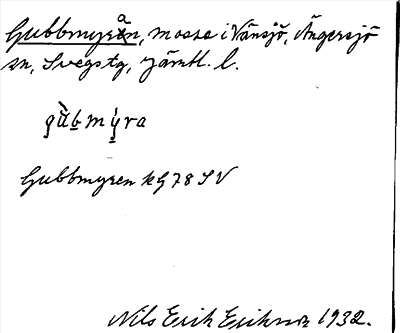 Gubbmyran, mosse i Vänsjö, Ängersjö
sn, Svegs tg, Jämtl. l.
gùbmýra
Gubbmyren kG 78 SV
Nils Erik Eriksson 1932.